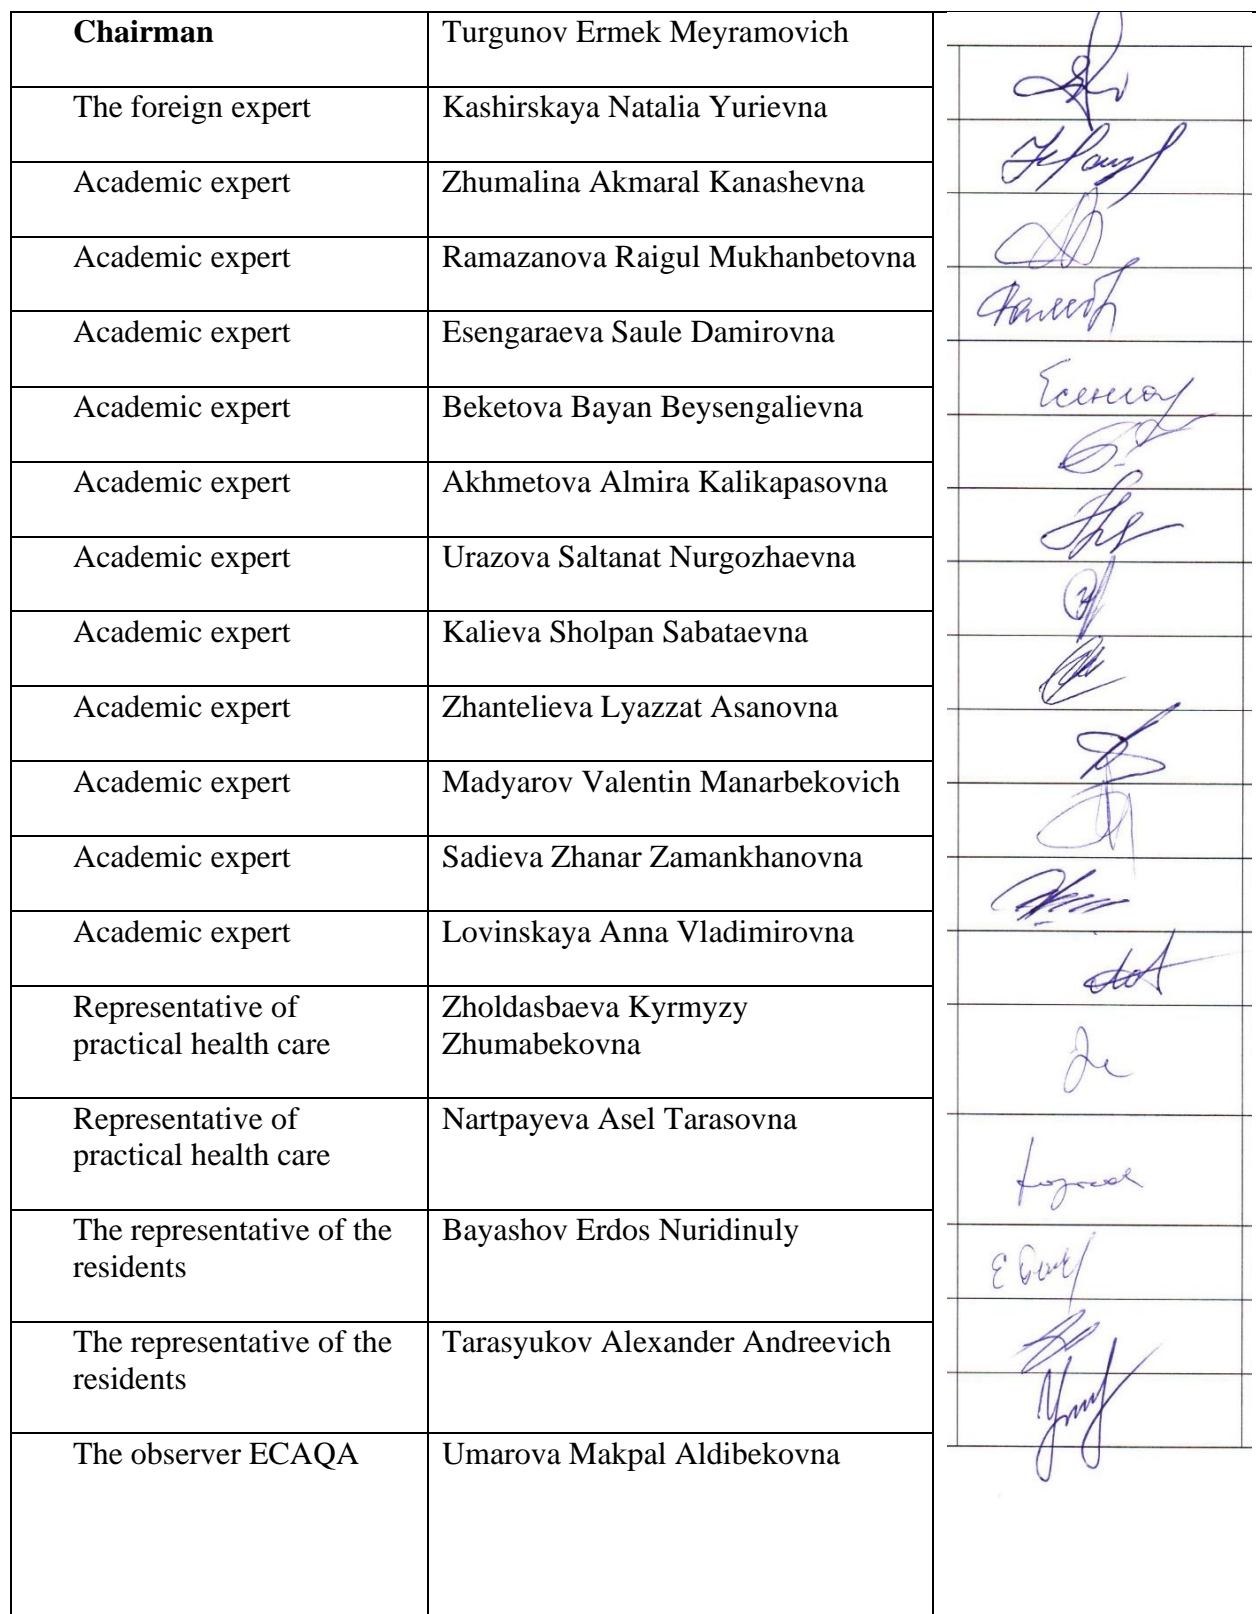 Chairman Turgunov Ermek Meyramovich
The foreign expert Kashirskaya Natalia Yurievna
Academic expert Zhumalina Akmaral Kanashevna
Academic expert Ramazanova Raigul Mukhanbetovna
Academic expert Esengaraeva Saule Damirovna
Academic expert Beketova Bayan Beysengalievna
Academic expert Akhmetova Almira Kalikapasovna
Academic expert Urazova Saltanat Nurgozhaevna
Academic expert Kalieva Sholpan Sabataevna
Academic expert Zhantelieva Lyazzat Asanovna
Academic expert Madyarov Valentin Manarbekovich
Academic expert Sadieva Zhanar Zamankhanovna
Academic expert Lovinskaya Anna Vladimirovna
Representative of
practical health care
Zholdasbaeva Kyrmyzy
Zhumabekovna
Representative of
practical health care
Nartpayeva Asel Tarasovna
The representative of the
residents
Bayashov Erdos Nuridinuly
The representative of the
residents
Tarasyukov Alexander Andreevich
The observer ECAQA Umarova Makpal Aldibekovna